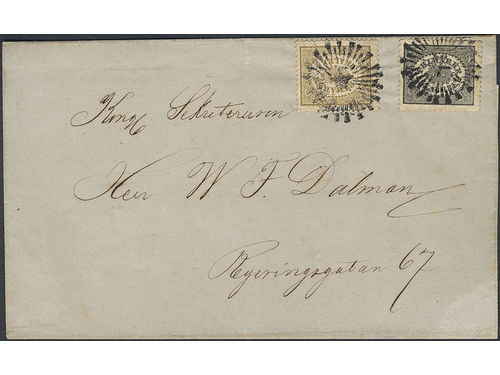 Kongl Sekreteraren
Herr W. F. Dalman
Regeringsgatan 67